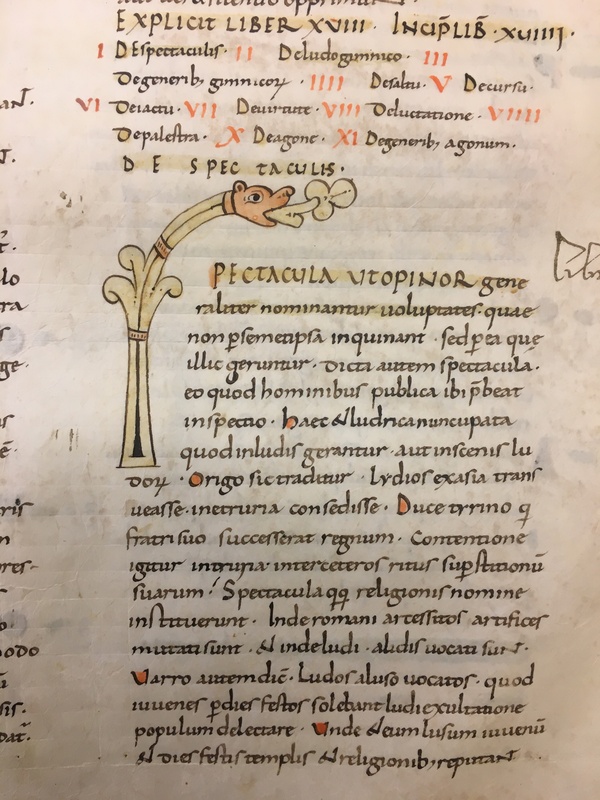 EXPLICIT LIBER XVIII · INCIP̄ LIB̄ · XVIIII ·
I DEspectaculis · II Deludogimnico · III
Degenerib; gimnicoꝝ · IIII Desaltu · V Decursu ·
VI Deiactu · VII Deuirtute · VIII Deluctatione · VIIII
Depalestra · X Deagone · XI Degenerib; agonum ·
DE SPECTACULIS ·
SPECTACULA UTOPINOR gene
raliter nominantur uoluptates · quae
non ꝑsemetipsa inquinant · sed ꝑ ea quę
illic geruntur · Dicta autem spectacula ·
eo quod hominibus publica ibi p̄beat
inspectio · haec & ludrica nuncupata
quod inludis gerantur · aut inscenis lu
doꝝ · Origo sic traditur · Lydios exasia trans
ueasse · inetruria consedisse · Duce tyrino q
fratri suo successerat regnum · Contentione
igitur intyria inter ceteros ritus suꝑstitionū
suarum · Spectacula qq religionis nomine
instituerunt · Inde romani arcessitos artifices
mutati sunt · & inde ludi · aludis uocati sunt ·
Uarro autem dic̄ · Ludos aluso uocatos · quod
iuuenes ꝑ dies festos solebant ludi exultatione
populum delectare · Unde & eum lusum iuuenū
& dies festis templis & religionib; reputant ·